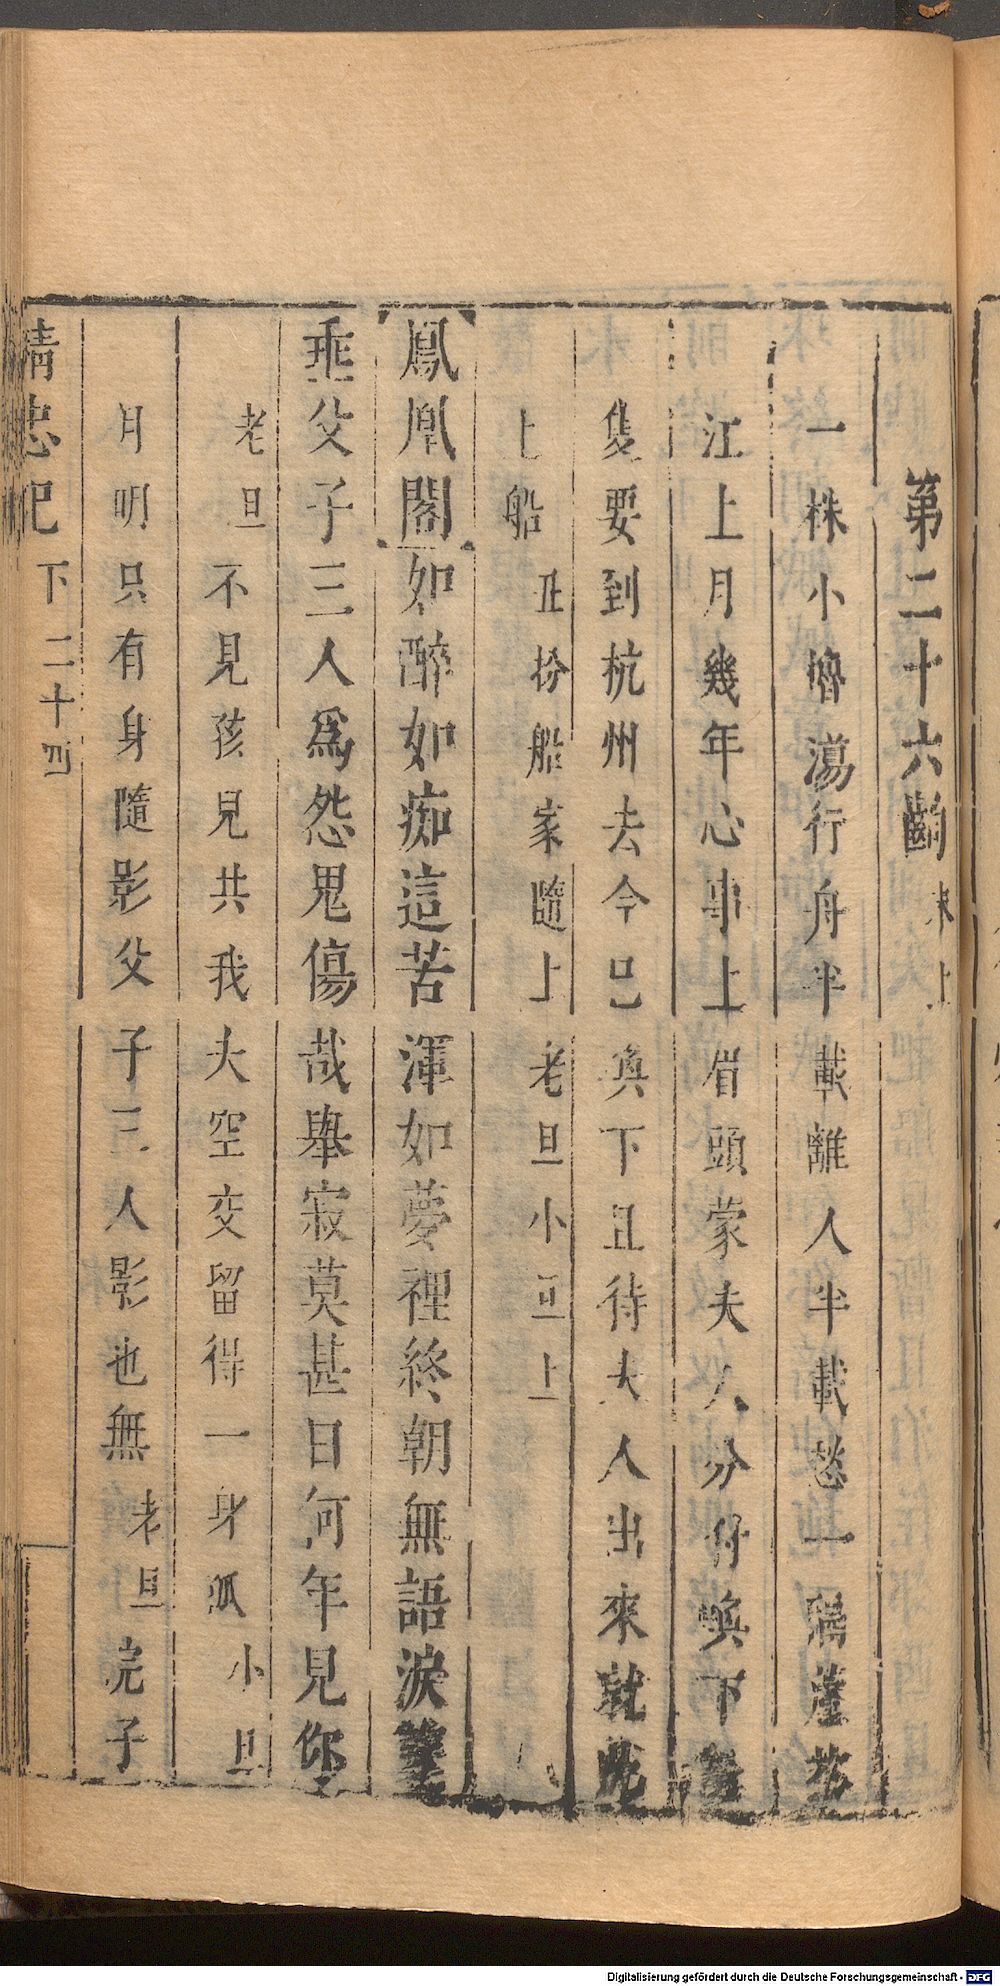 第二十六齣 末上
一株小櫓蕩行舟半載離人半載愁一隔蘆花
江上月幾年心事上眉頭蒙夫人分付喚下
隻要到杭州去今已喚下且待夫人出來就
上船 丑扮船家隨上老旦小旦上
鳳凰閣如醉如痴這苦渾如夢裡終朝無語淚
垂父子三人爲怨鬼傷哉舉寂莫甚日何年見你
老旦不見孩兒共我夫空交留得一身孤小旦
月明只有身隨影父子三人影也無老旦完子
精忠記 下 二十四
Digitalisierung gefördert durch die Deutsche Forschungsgemeinschaft - DFG